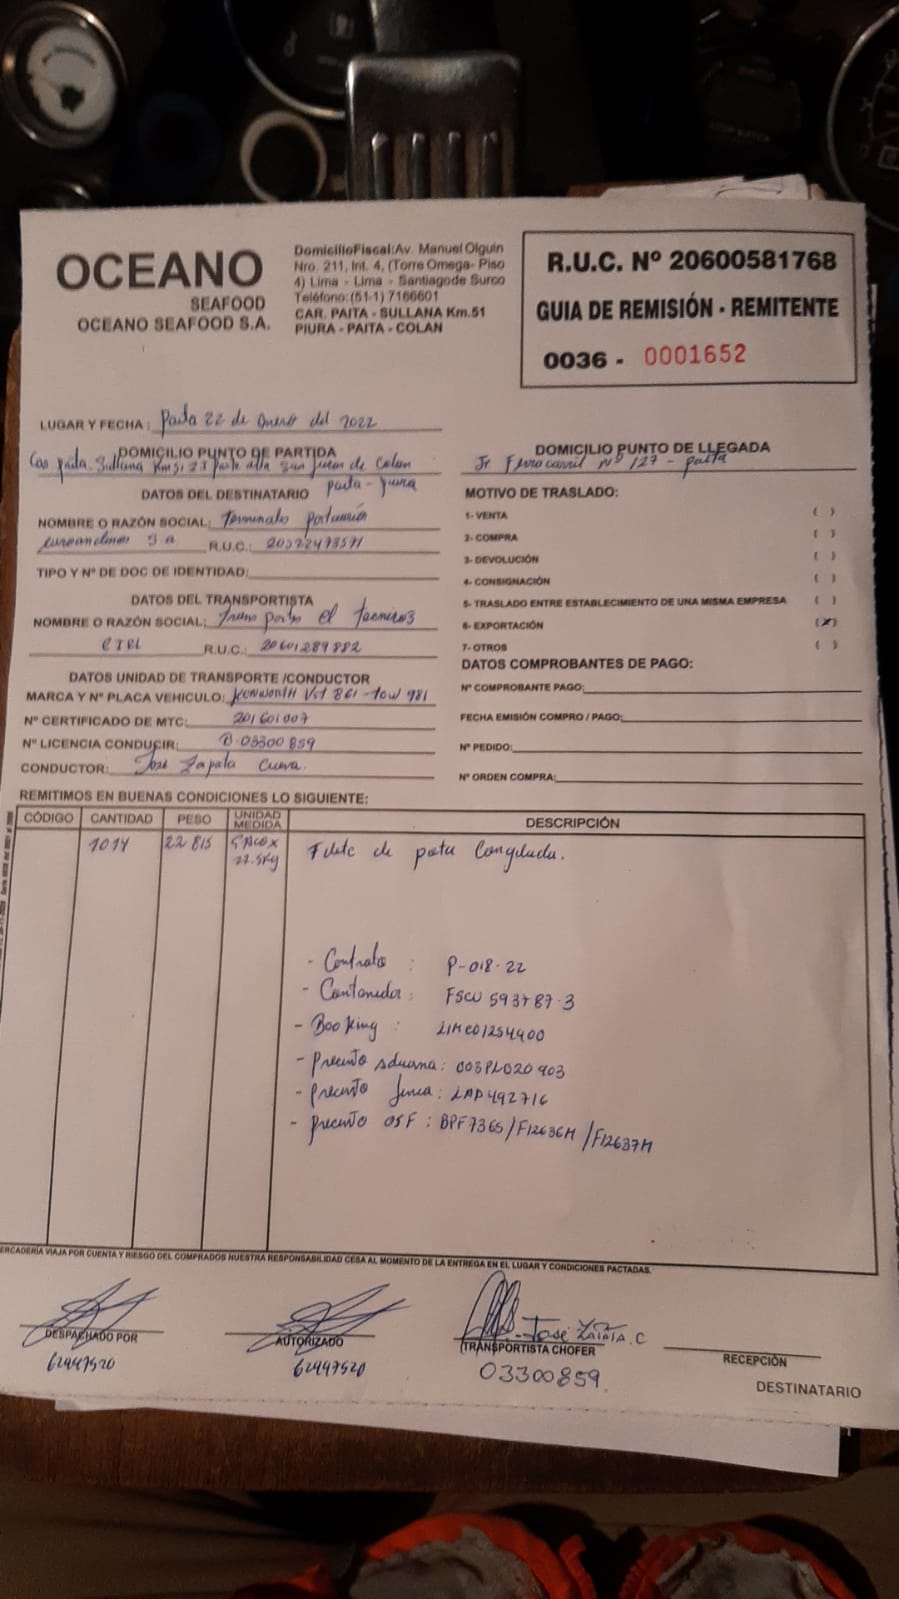 OCEANO
SEAFOOD
OCEANO SEAFOOD S.A.
DomicilioFiscal:Av. Manuel Olguin
Nro. 211, Int. 4, (Torre Omega- Piso
4) Lima - Lima - Santiagode Surco
Teléfono:(51-1) 7166601
CAR. PAITA - SULLANA Km.51
PIURA - PAITA - COLAN
R.U.C. Nº 20600581768
GUIA DE REMISIÓN - REMITENTE
0036 - 0001652
LUGAR Y FECHA : Paita 22 de Enero del 2022
DOMICILIO PUNTO DE PARTIDA
Car paita Sullana Km 51 San Lucas de Colan
paita - piura
DOMICILIO PUNTO DE LLEGADA
Jr Ferrocarril Nº 127 - paita
DATOS DEL DESTINATARIO
NOMBRE O RAZÓN SOCIAL: Terminales portuarios
euroandinos S a R.U.C.: 20522473571
TIPO Y Nº DE DOC DE IDENTIDAD:
DATOS DEL TRANSPORTISTA
NOMBRE O RAZÓN SOCIAL: Transportes el
EIRL R.U.C.: 20601289882
DATOS UNIDAD DE TRANSPORTE /CONDUCTOR
MARCA Y Nº PLACA VEHICULO: Kenworth 861 - 981
Nº CERTIFICADO DE MTC: 201601007
Nº LICENCIA CONDUCIR: B-03300859
CONDUCTOR: Jose Zapata Cueva.
MOTIVO DE TRASLADO:
1- VENTA ( )
2- COMPRA ( )
3- DEVOLUCIÓN ( )
4- CONSIGNACIÓN ( )
5- TRASLADO ENTRE ESTABLECIMIENTO DE UNA MISMA EMPRESA ( )
6- EXPORTACIÓN (x)
7- OTROS ( )
DATOS COMPROBANTES DE PAGO:
Nº COMPROBANTE PAGO:
FECHA EMISIÓN COMPRO / PAGO:
Nº PEDIDO:
Nº ORDEN COMPRA:
REMITIMOS EN BUENAS CONDICIONES LO SIGUIENTE:
CÓDIGO CANTIDAD PESO UNIDAD MEDIDA DESCRIPCIÓN
1014 22 815 Saco x 22.5Kg Filete de pota Congelada.
- Contrato : P-018-22
- Contenedor : FSCU 593787-3
- Booking : LIMC01254400
- Precinto aduana : 003PL020903
- precinto linea : LAP492716
- precinto OSF : BPF7365/F12636M/F12637M
MERCADERÍA VIAJA POR CUENTA Y RIESGO DEL COMPRADOS NUESTRA RESPONSABILIDAD CESA AL MOMENTO DE LA ENTREGA EN EL LUGAR Y CONDICIONES PACTADAS.
DESPACHADO POR
62447520
AUTORIZADO
62447520
José Zapata. C
TRANSPORTISTA CHOFER
03300859
RECEPCIÓN
DESTINATARIO